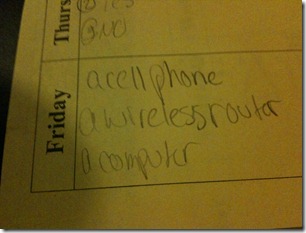 Thurs
② Yes
③ NO
Friday
a cell phone
a wireless router
a computer